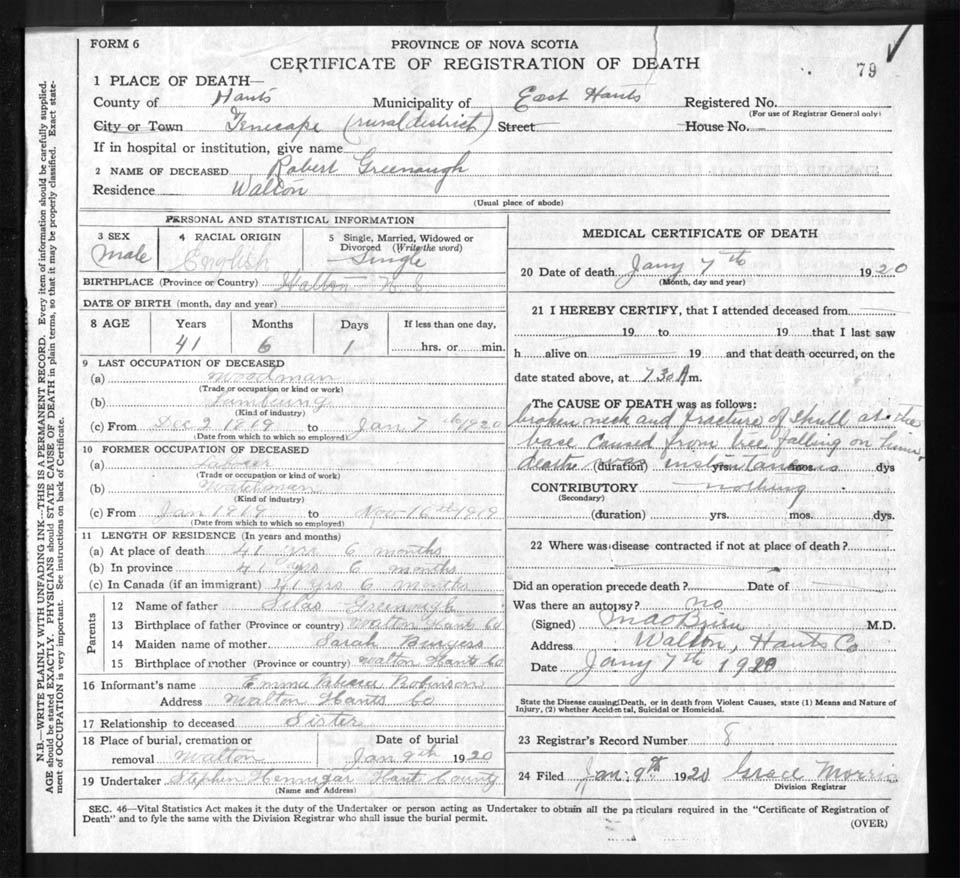 FORM 6
PROVINCE OF NOVA SCOTIA
CERTIFICATE OF REGISTRATION OF DEATH
79
1 PLACE OF DEATH—
County of Hants Municipality of East Hants Registered No.
(For use of Registrar General only)
City or Town Tenecape (rural district) Street House No.
If in hospital or institution, give name
2 NAME OF DECEASED Robert Greenough
Residence Walton
(Usual place of abode)
PERSONAL AND STATISTICAL INFORMATION
3 SEX 4 RACIAL ORIGIN 5 Single, Married, Widowed or Divorced (Write the word)
Male English Single
BIRTHPLACE (Province or Country) Walton
DATE OF BIRTH (month, day and year)
8 AGE Years Months Days If less than one day,
41 6 1 hrs. or min.
9 LAST OCCUPATION OF DECEASED
(a) Woodman
(Trade or occupation or kind of work)
(b) Lumbering
(Kind of industry)
(c) From Dec 2 1919 to Jan 7th 1920
(Date from which to which so employed)
10 FORMER OCCUPATION OF DECEASED
(a) Laborer
(Trade or occupation or kind of work)
(b) Watchman
(Kind of industry)
(c) From Jan 1919 to Nov 16th 1919
(Date from which to which so employed)
11 LENGTH OF RESIDENCE (In years and months)
(a) At place of death 41 yrs 6 months
(b) In province 41 yrs 6 months
(c) In Canada (if an immigrant) 41 yrs 6 months
Parents
12 Name of father Silas Greenough
13 Birthplace of father (Province or country) Walton Hants Co
14 Maiden name of mother Sarah Burgess
15 Birthplace of mother (Province or country) Walton Hants Co
16 Informant's name Emma Robinson
Address Walton Hants Co
17 Relationship to deceased Sister
18 Place of burial, cremation or removal Walton
Date of burial Jan 9th 1920
19 Undertaker Stephen Hennigar Hants County
(Name and Address)
MEDICAL CERTIFICATE OF DEATH
20 Date of death Jany 7th 1920
(Month, day and year)
21 I HEREBY CERTIFY, that I attended deceased from
19 to 19 that I last saw
h alive on 19 and that death occurred, on the
date stated above, at 7.30 A.m.
The CAUSE OF DEATH was as follows:
broken neck and fracture of skull at the
base caused from tree falling on him,
death was instantaneous (duration) yrs. mos. dys
CONTRIBUTORY nothing
(Secondary)
(duration) yrs. mos. dys.
22 Where was disease contracted if not at place of death?
Did an operation precede death? Date of
Was there an autopsy? no
(Signed) M.D.
Address Walton, Hants Co
Date Jany 7th 1920
State the Disease causing Death, or in death from Violent Causes, state (1) Means and Nature of
Injury, (2) whether Accidental, Suicidal or Homicidal.
23 Registrar's Record Number 8
24 Filed Jan. 9th 1920 Grace Morris
Division Registrar
SEC. 46—Vital Statistics Act makes it the duty of the Undertaker or person acting as Undertaker to obtain all the particulars required in the "Certificate of Registration of
Death" and to fyle the same with the Division Registrar who shall issue the burial permit.
(OVER)
N.B.—WRITE PLAINLY WITH UNFADING INK—THIS IS A PERMANENT RECORD. Every item of information should be carefully supplied.
AGE should be stated EXACTLY. PHYSICIANS should STATE CAUSE OF DEATH in plain terms, so that it may be properly classified. Exact state-
ment of OCCUPATION is very important. See instructions on back of Certificate.